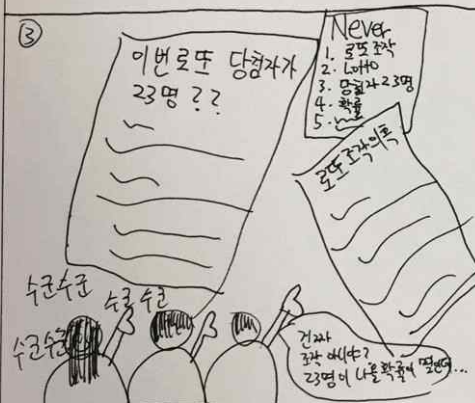 ③
이번 로또 당첨자가
23명??
Never
1. 로또 조작
2. Lotto
3. 당첨자 23명
4. 확률
5.
로또 조작 의혹
수군수군
수군 수군
수군수군
진짜
조작 아니야?
23명이 나올 확률이 몇인데...